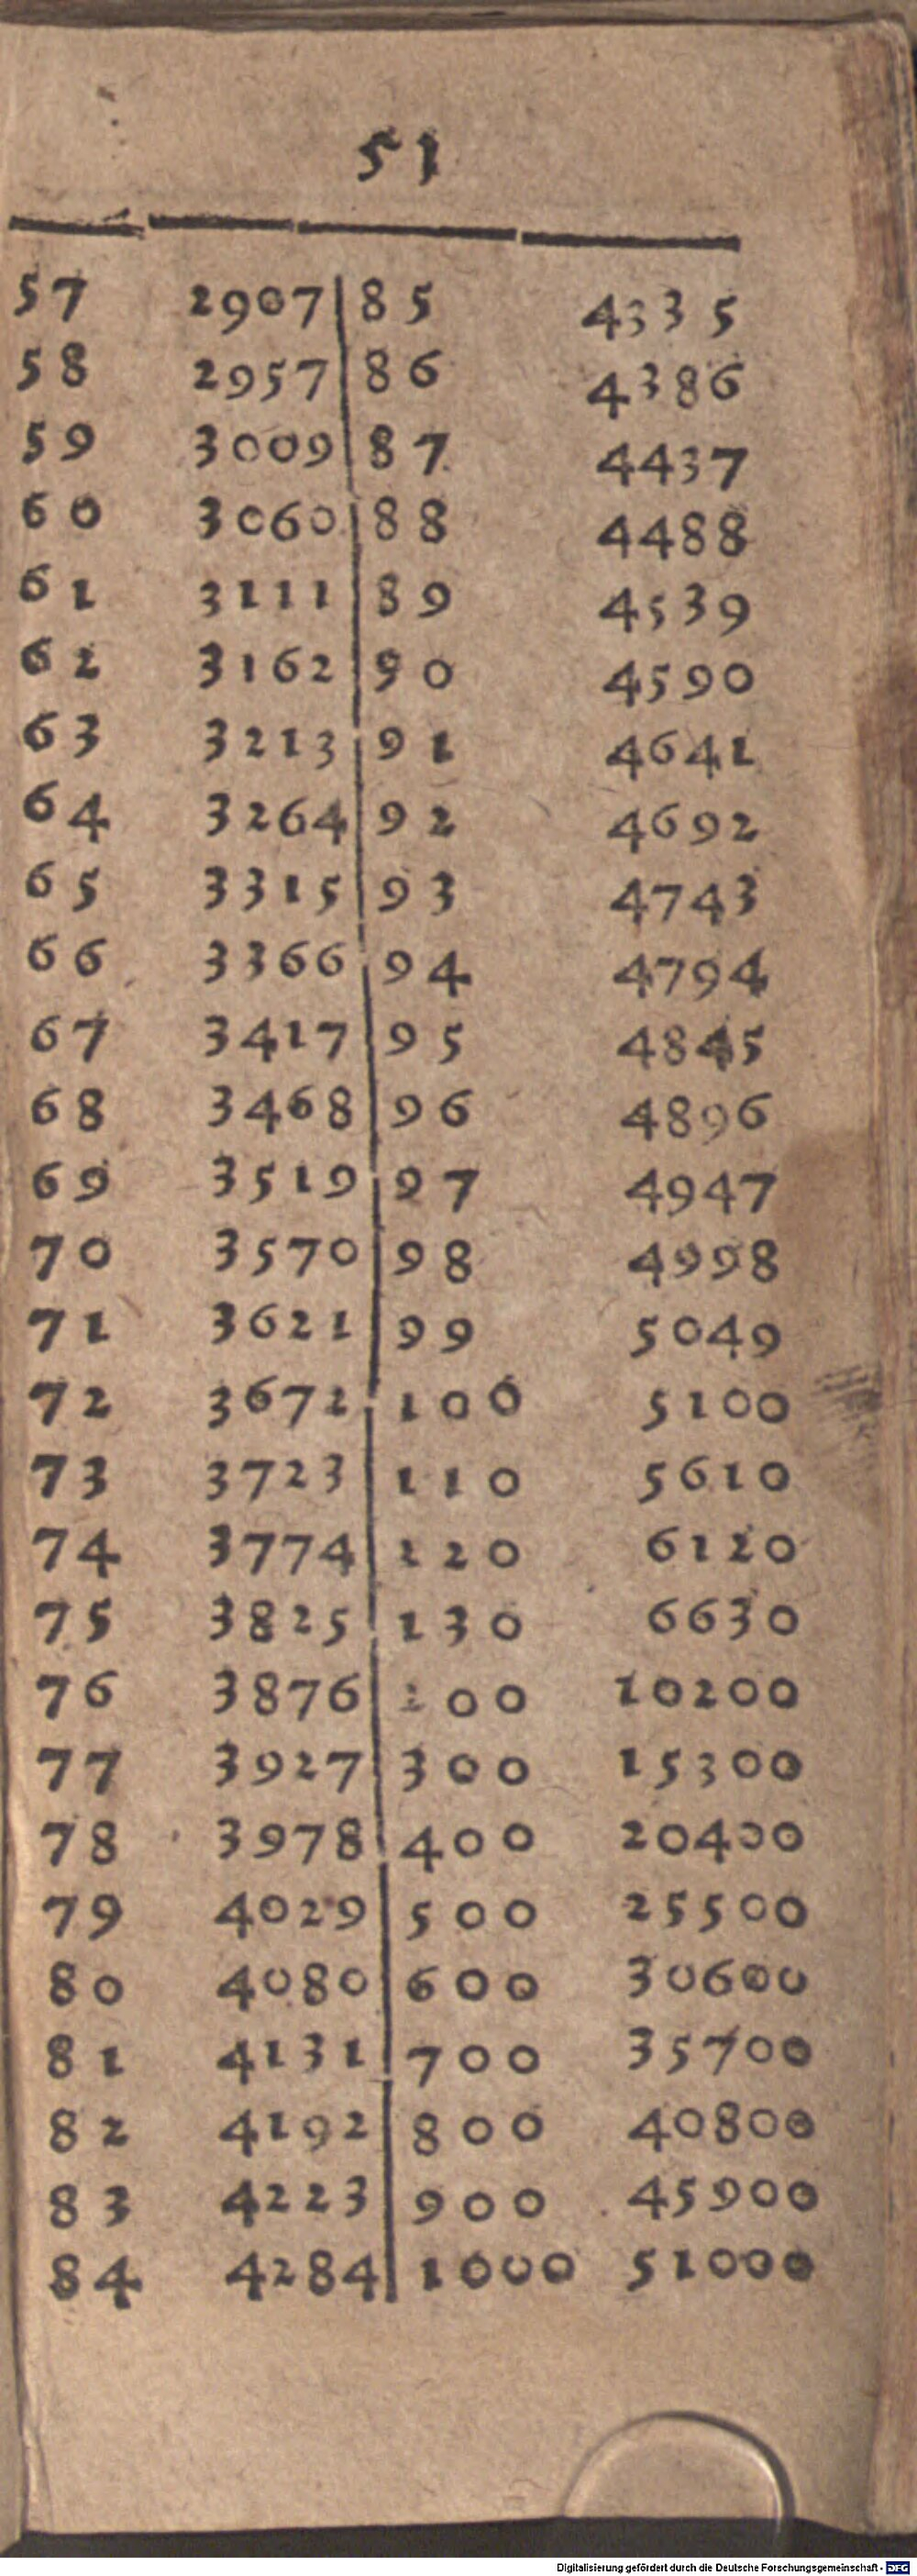 51
57 2907 85 4335
58 2957 86 4386
59 3009 87 4437
60 3060 88 4488
61 3111 89 4539
62 3162 90 4590
63 3213 91 4641
64 3264 92 4692
65 3315 93 4743
66 3366 94 4794
67 3417 95 4845
68 3468 96 4896
69 3519 97 4947
70 3570 98 4998
71 3621 99 5049
72 3672 100 5100
73 3723 110 5610
74 3774 120 6120
75 3825 130 6630
76 3876 200 10200
77 3927 300 15300
78 3978 400 20400
79 4029 500 25500
80 4080 600 30600
81 4131 700 35700
82 4192 800 40800
83 4223 900 45900
84 4284 1000 51000
Digitalisierung gefördert durch die Deutsche Forschungsgemeinschaft - DFG